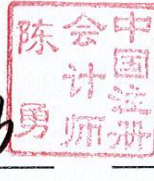 中国注册
会计师
陈勇